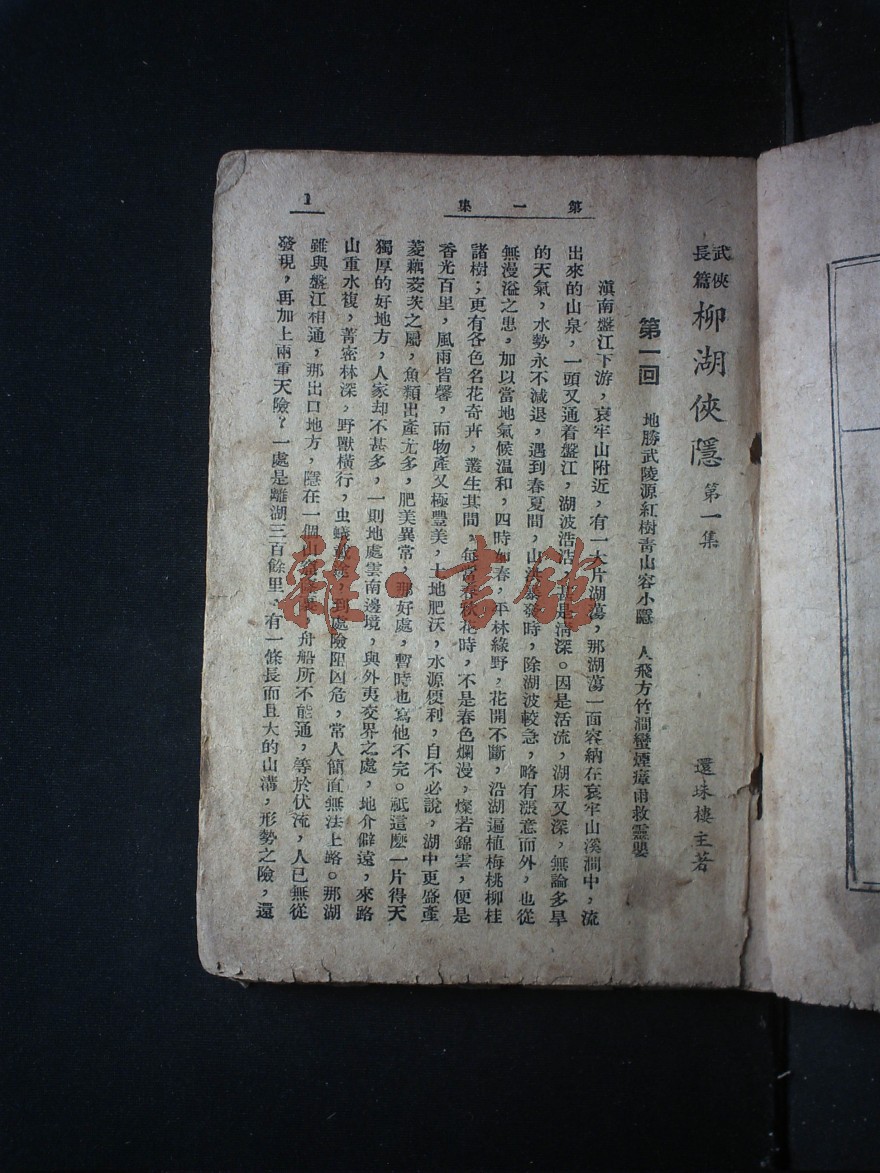 武俠長篇 柳湖俠隱 第一集
還珠樓主著
第一回 地勝武陵源紅樹青山容小隱 人飛方竹澗蠻煙瘴雨救靈嬰
第一集
1
滇南盤江下游，哀牢山附近，有一大片湖蕩，那湖蕩一面容納在哀牢山溪澗中，流
出來的山泉，一頭又通着盤江，湖波浩浩，甚是清深。因是活流，湖床又深，無論多旱
的天氣，水勢永不減退，遇到春夏間，山洪暴發時，除湖波較急，略有漲意而外，也從
無漫溢之患，加以當地氣候溫和，四時如春，平林綠野，花開不斷，沿湖遍植梅桃柳桂
諸樹；更有各色名花奇卉，叢生其間，每當春秋花時，不是春色爛漫，燦若錦雲，便是
香光百里，風雨皆馨，而物產又極豐美，土地肥沃，水源便利，自不必說，湖中更盛產
菱藕芡之屬，魚類出產尤多，肥美異常，那好處，暫時也寫他不完。祇這麽一片得天
獨厚的好地方，人家却不甚多，一則地處雲南邊境，與外夷交界之處，地介僻遠，來路
山重水複，菁密林深，野獸橫行，虫蟻載途，到處險阻凶危，常人簡直無法上路。那湖
雖與盤江相通，那出口地方，隱在一個山，舟船所不能通，等於伏流，人已無從
發現，再加上兩重天險，一處是離湖三百餘里、有一條長而且大的山溝，形勢之險，還
雜·書館